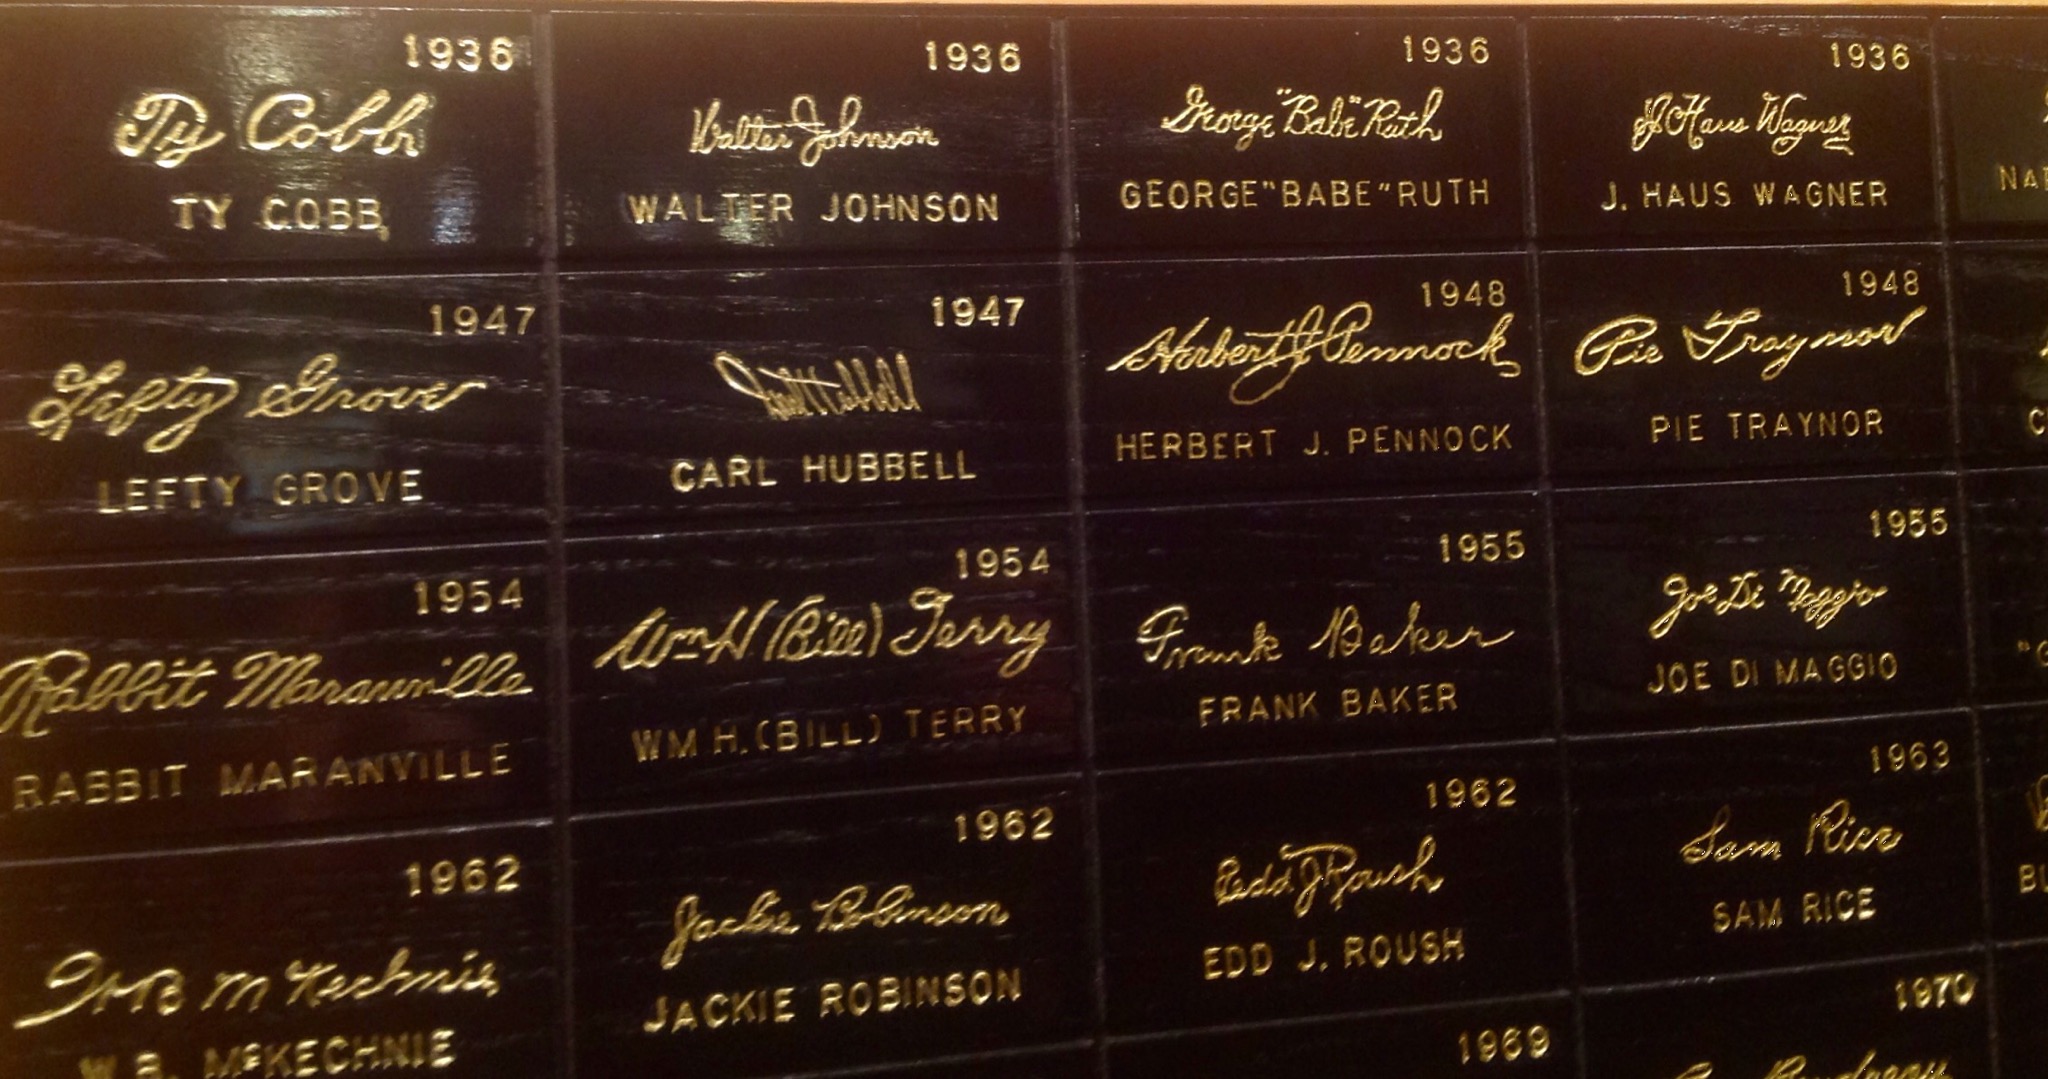 1936
Ty Cobb
TY COBB
1936
Walter Johnson
WALTER JOHNSON
1936
George "Babe" Ruth
GEORGE "BABE" RUTH
1936
J Haus Wagner
J. HAUS WAGNER
1947
Lefty Grove
LEFTY GROVE
1947
Carl Hubbell
CARL HUBBELL
1948
Herbert J Pennock
HERBERT J. PENNOCK
1948
Pie Traynor
PIE TRAYNOR
1954
Rabbit Maranville
RABBIT MARANVILLE
1954
Wm H (Bill) Terry
WM H. (BILL) TERRY
1955
Frank Baker
FRANK BAKER
1955
Joe Di Maggio
JOE DI MAGGIO
1962
W B McKechnie
W. B. McKECHNIE
1962
Jackie Robinson
JACKIE ROBINSON
1962
Edd J Roush
EDD J. ROUSH
1963
Sam Rice
SAM RICE
1969
1970